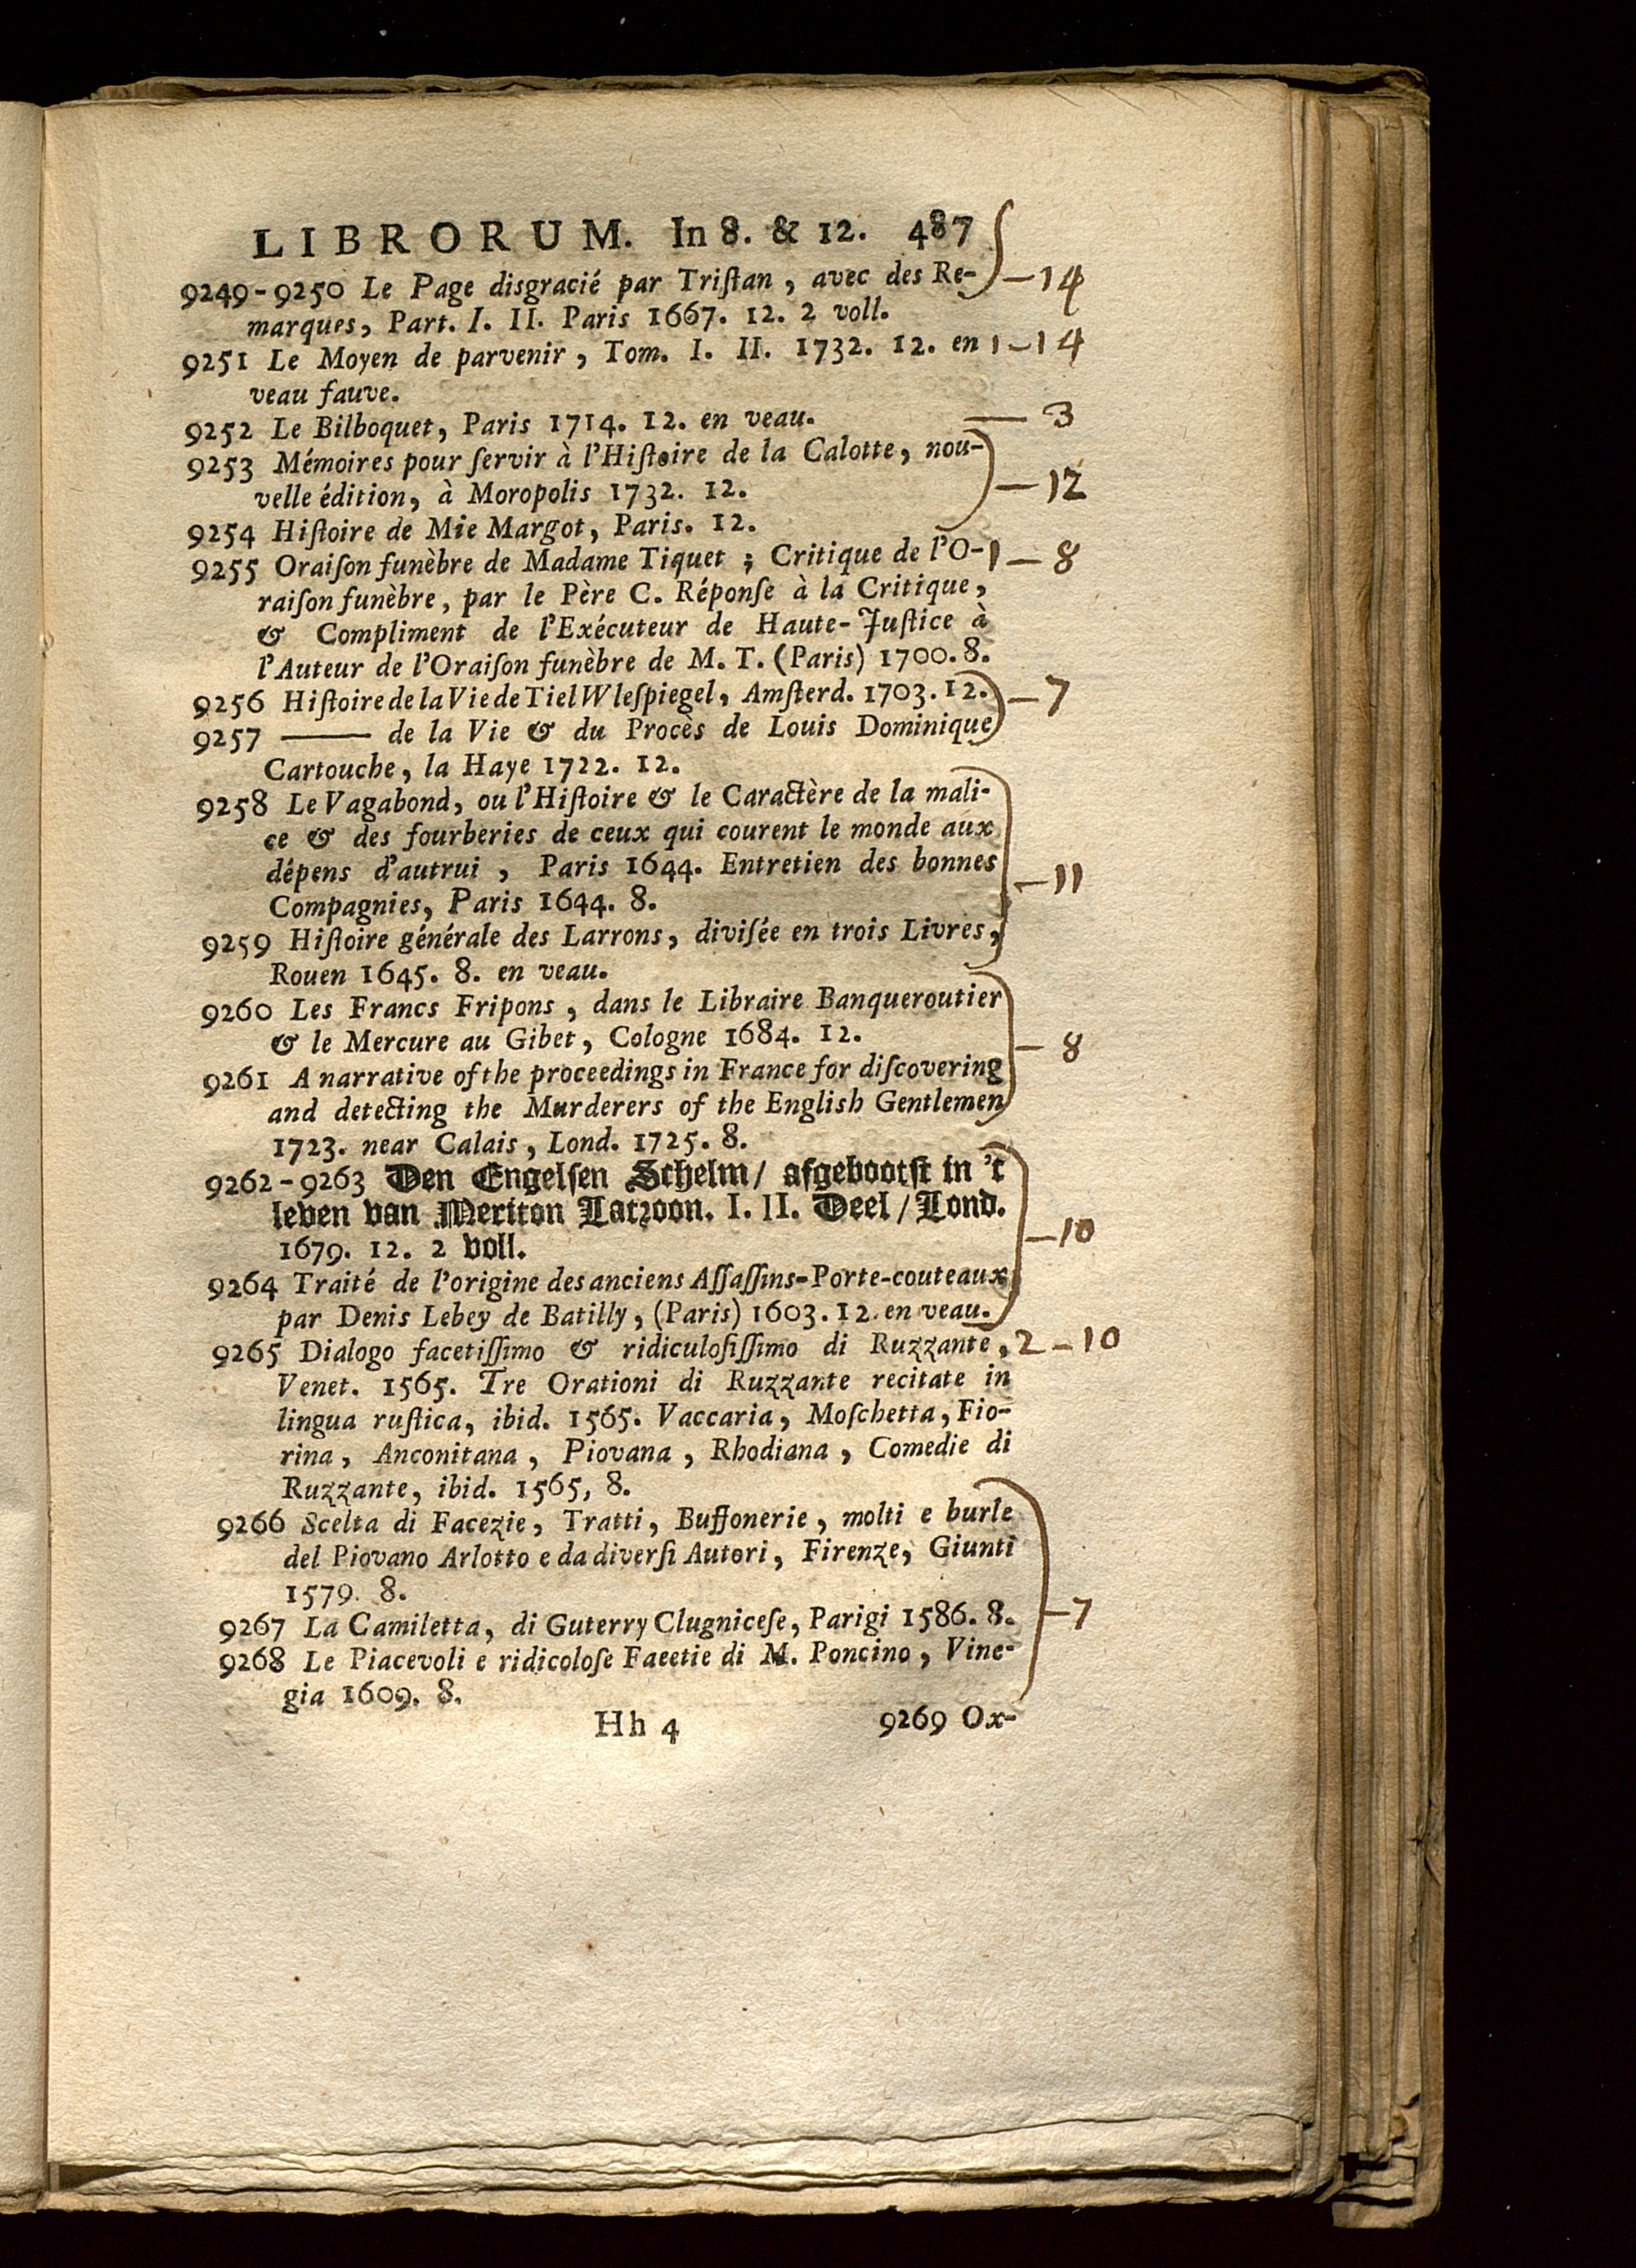 LIBRORUM. In 8. & 12. 487
9249-9250 Le Page disgracié par Triſtan, avec des Re- —14
marques, Part. I. II. Paris 1667. 12. 2 voll.
9251 Le Moyen de parvenir, Tom. I. II. 1732. 12. en 1—14
veau fauve.
9252 Le Bilboquet, Paris 1714. 12. en veau. — 3
9253 Mémoires pour ſervir à l'Hiſtoire de la Calotte, nou-
velle édition, à Moropolis 1732. 12. —12
9254 Hiſtoire de Mie Margot, Paris. 12.
9255 Oraiſon funèbre de Madame Tiquet ; Critique de l'O- 1—8
raiſon funèbre, par le Père C. Réponſe à la Critique,
& Compliment de l'Exécuteur de Haute-Juſtice à
l'Auteur de l'Oraiſon funèbre de M. T. (Paris) 1700. 8.
9256 Hiſtoire de la Vie de Tiel Wleſpiegel, Amſterd. 1703. 12. —7
9257 —— de la Vie & du Procès de Louis Dominique
Cartouche, la Haye 1722. 12.
9258 Le Vagabond, ou l'Hiſtoire & le Caractère de la mali-
ce & des fourberies de ceux qui courent le monde aux
dépens d'autrui, Paris 1644. Entretien des bonnes —11
Compagnies, Paris 1644. 8.
9259 Hiſtoire générale des Larrons, diviſée en trois Livres,
Rouen 1645. 8. en veau.
9260 Les Francs Fripons, dans le Libraire Banqueroutier
& le Mercure au Gibet, Cologne 1684. 12. — 8
9261 A narrative of the proceedings in France for diſcovering
and detecting the Murderers of the English Gentlemen
1723. near Calais, Lond. 1725. 8.
9262-9263 Den Engelſen Schelm/ afgebootſt in 't
leven van Meriton Latzoon. I. II. Deel/ Lond.
1679. 12. 2 voll. —10
9264 Traité de l'origine des anciens Aſſaſſins-Porte-couteaux
par Denis Lebey de Batilly, (Paris) 1603. 12. en veau.
9265 Dialogo facetiſſimo & ridiculoſiſſimo di Ruzzante, 2—10
Venet. 1565. Tre Orationi di Ruzzante recitate in
lingua ruſtica, ibid. 1565. Vaccaria, Moſchetta, Fio-
rina, Anconitana, Piovana, Rhodiana, Comedie di
Ruzzante, ibid. 1565, 8.
9266 Scelta di Facezie, Tratti, Buffonerie, molti e burle
del Piovano Arlotto e da diverſi Autori, Firenze, Giunti
1579. 8.
9267 La Camiletta, di Guterry Clugniceſe, Parigi 1586. 8. —7
9268 Le Piacevoli e ridicoloſe Faeetie di M. Poncino, Vine-
gia 1609. 8.
Hh 4 9269 Ox-